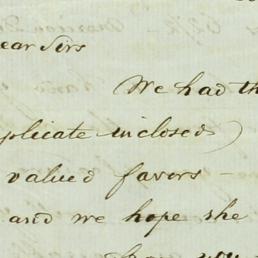 ear Sirs
We had th
plicate inclosed)
valued favors -
and we hope she